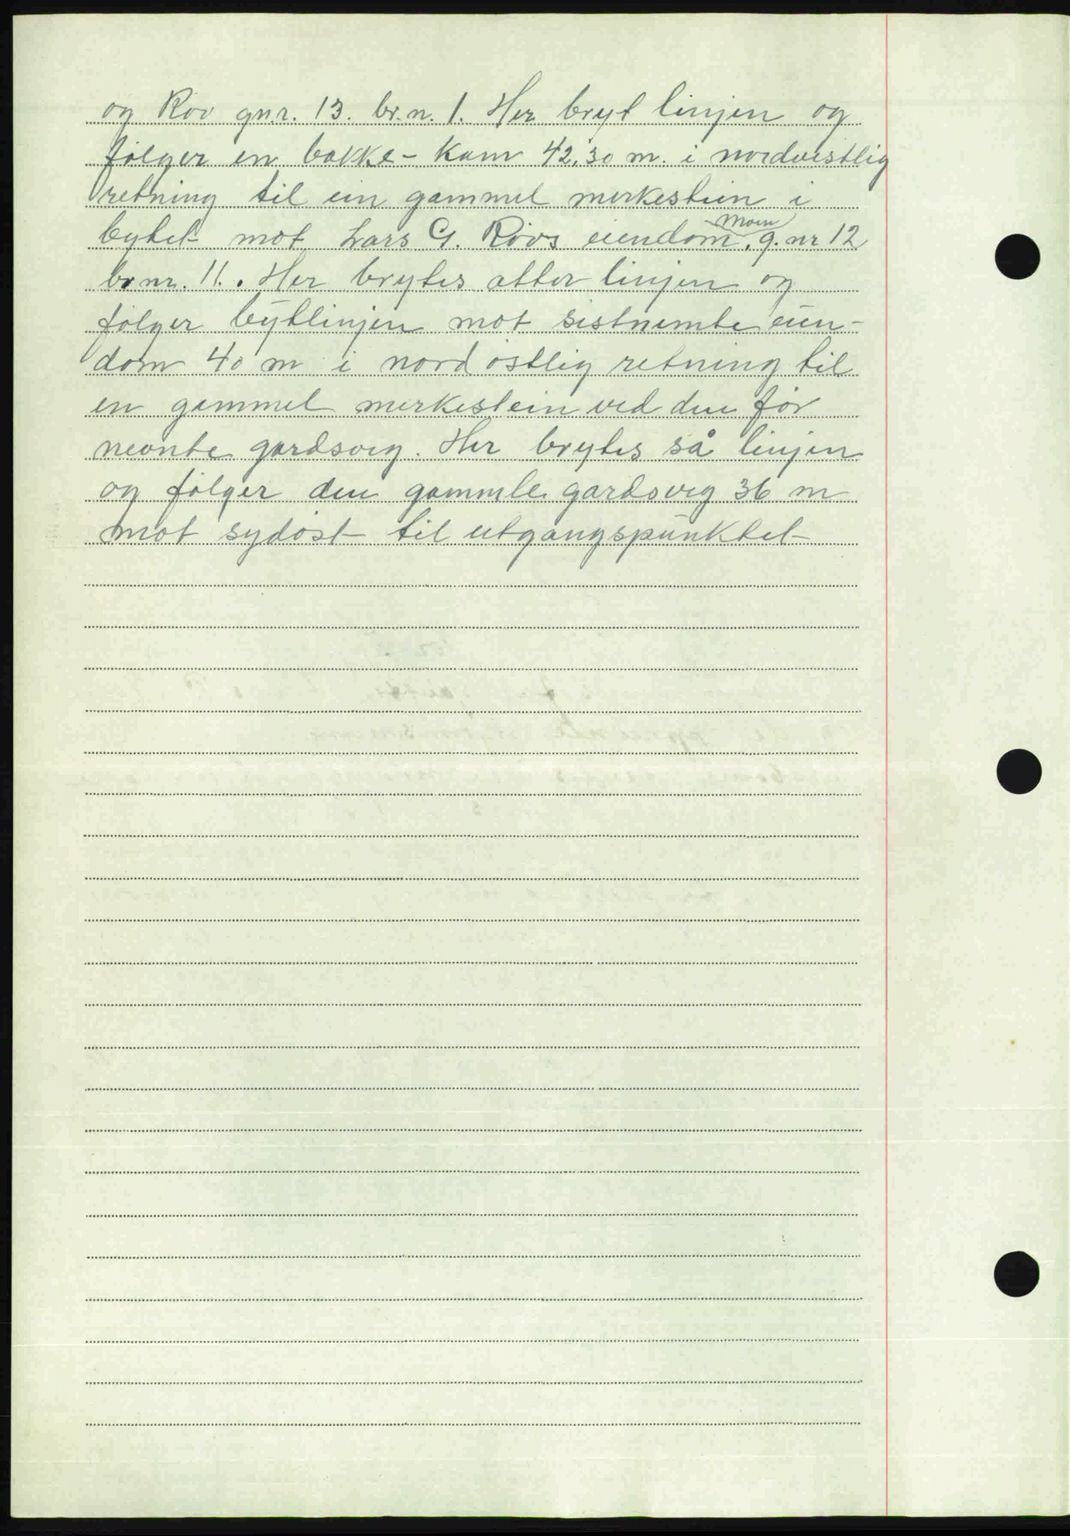 og Rov gn.r. 13. br.n. 1. Her bryt linjen og
følger en bakke- kam 42,30 m. i nordvestlig
retning til ein gammel merkestein i
bytet mot Lars G. Rovs eiendom, Moen g.nr 12
br.nr. 11. Her brytes atter linjen og
følger bytlinjen mot sistnemte eien-
dom 40 m i nord østlig retning til
en gammel merkestein ved den før
nevnte gardsveg. Her brytes så linjen
og følger den gammle gardsveg 36 m
mot sydøst til utgangspunktet